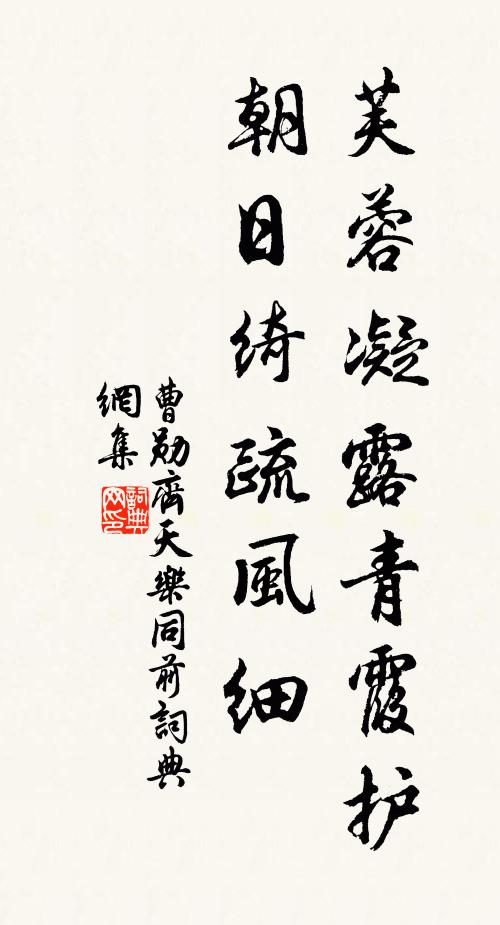 芙蓉凝露青霞护
朝日绮疏風细
曹勛齊天樂同前詞典
網集
詞典
网印